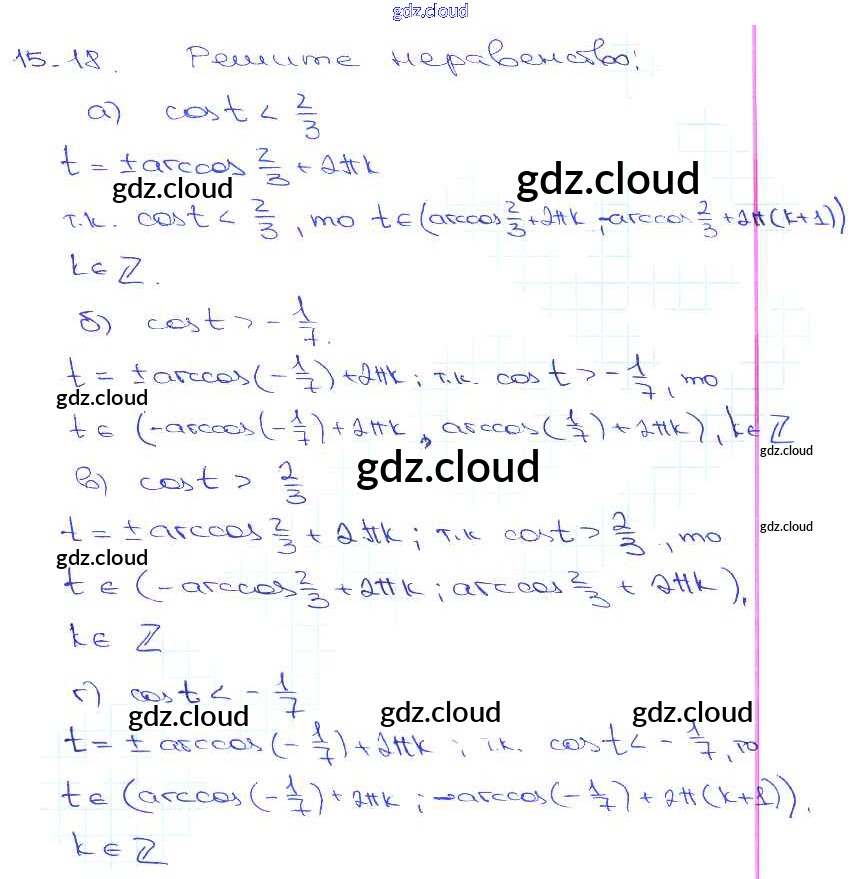 gdz.cloud
15-18. Решите неравенство:
а) cos t < 2/3
t = ± arccos 2/3 + 2πk
gdz.cloud
gdz.cloud
т.к. cos t < 2/3, то t ∈ (arccos 2/3 + 2πk ; -arccos 2/3 + 2π(k+1))
k ∈ ℤ.
б) cos t > -1/7.
t = ± arccos(-1/7) + 2πk ; т.к. cos t > -1/7, то
gdz.cloud
t ∈ (-arccos(-1/7) + 2πk, arccos(1/7) + 2πk), k ∈ ℤ
gdz.cloud
gdz.cloud
в) cos t > 2/3
t = ± arccos 2/3 + 2πk ; т.к. cos t > 2/3, то
gdz.cloud
gdz.cloud
t ∈ (-arccos 2/3 + 2πk ; arccos 2/3 + 2πk),
k ∈ ℤ
г) cos t < -1/7
gdz.cloud
gdz.cloud
gdz.cloud
t = ± arccos(-1/7) + 2πk ; т.к. cos t < -1/7, то
t ∈ (arccos(-1/7) + 2πk ; -arccos(-1/7) + 2π(k+1)).
k ∈ ℤ